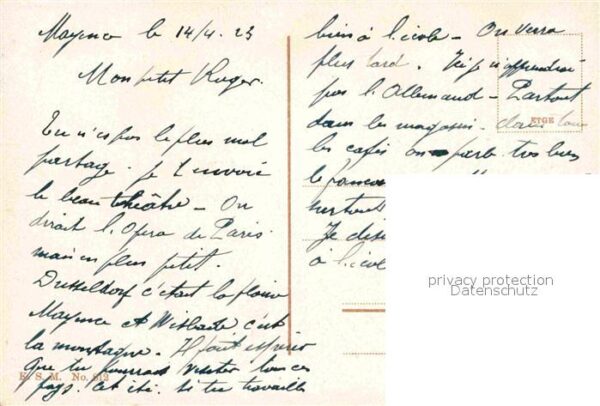 Mayence le 14/4. 23
Mon petit Roger.
Tu n'es pas le plus mal
partagé. je t'envoie
le beau théâtre - On
dirait l'Opéra de Paris
mais en plus petit.
Dusseldorf c'était la plaine
Mayence et Wisbade c'est
la montagne. Il faut espérer
que tu pourras visiter tous ces
pays. cet été. si tu travailles
K. S. M. No. 812
bien à l'école - On verra
plus tard.
pas l'Allemand - Partout
dans les magasins. dans tous
les cafés on parle très bien
le
surtout
Je
à l'école
ETGE
privacy protection
Datenschutz